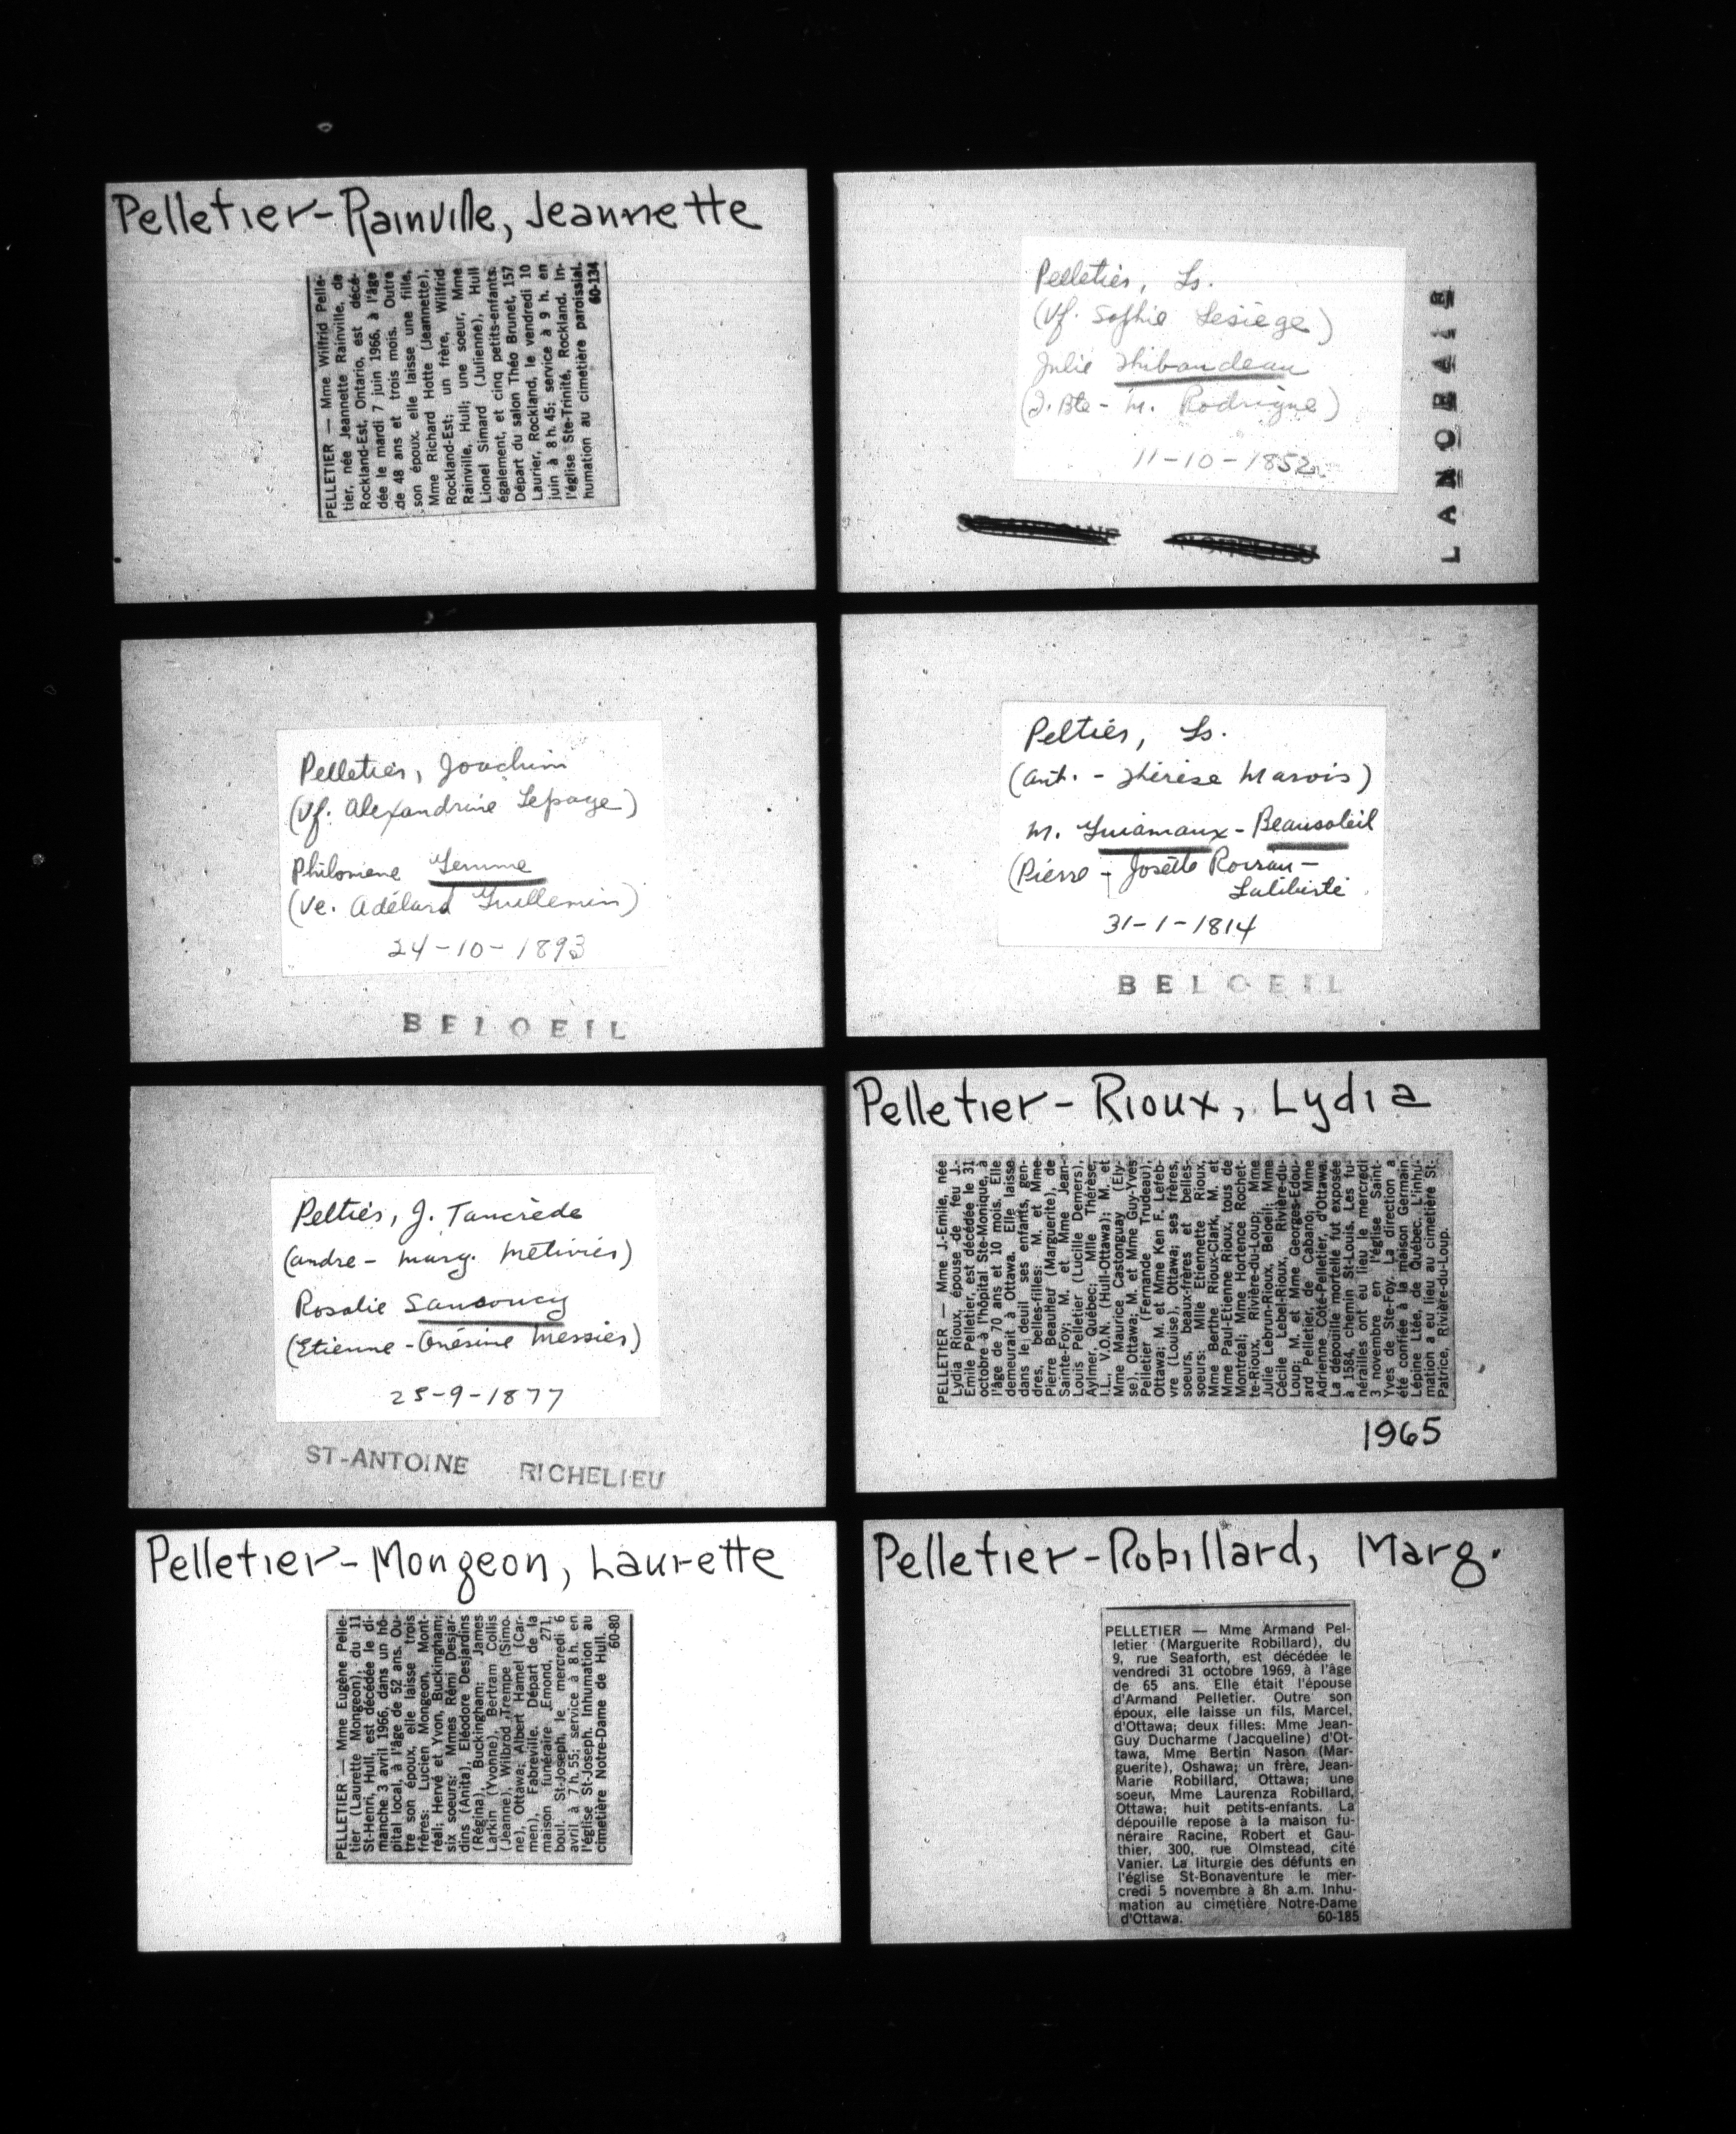 Pelletier-Rainville, Jeannette
PELLETIER — Mme Wilfrid Pelle-
tier, née Jeannette Rainville, de
Rockland-Est, Ontario, est décé-
dée le mardi 7 juin 1966, à l'âge
de 48 ans et trois mois. Outre
son époux, elle laisse une fille,
Mme Richard Hotte (Jeannette),
Rockland-Est; un frère, Wilfrid
Rainville, Hull; une soeur, Mme
Lionel Simard (Julienne), Hull
également, et cinq petits-enfants.
Départ du salon Théo Brunet, 157
Laurier, Rockland, le vendredi 10
juin à 8 h. 45; service à 9 h. en
l'église Ste-Trinité, Rockland. In-
humation au cimetière paroissial.
60-134
Pelletier, Ls.
(Vf. Sophie Lesiège)
Julie Thibaudeau
(J. Bte - M. Rodrigue)
11-10-1852
LANORAIE
Pelletier, Joachim
(Vf. Alexandrine Lepage)
Philomene Lemme
(Ve. Adélard Guillemin)
24-10-1893
BELOEIL
Peltier, Ls.
(Ant. - Thérèse Marois)
M. - Beausoleil
(Pierre - Josette
Laliberté
31-1-1814
BELOEIL
Peltier, J. Tancrède
(André - Marg. Métivier)
Rosalie Sansoucy
(Etienne - Onésime Messier)
25-9-1877
ST-ANTOINE RICHELIEU
Pelletier-Rioux, Lydia
PELLETIER — Mme J.-Emile, née
Lydia Rioux, épouse de feu J.-
Emile Pelletier, est décédée le 31
octobre à l'hôpital Ste-Monique, à
l'âge de 70 ans et 10 mois. Elle
demeurait à Ottawa. Elle laisse
dans le deuil ses enfants, gen-
dres, belles-filles: M. et Mme
Pierre Beaulieu (Marguerite), de
Sainte-Foy; M. et Mme Jean-
Louis Pelletier (Lucille Demers),
Aylmer, Québec; Mlle Thérèse,
I.L., V.O.N. (Hull-Ottawa); M. et
Mme Maurice Castonguay (Ely-
se), Ottawa; M. et Mme Guy-Yves
Pelletier (Fernande Trudeau),
Ottawa; M. et Mme Ken F. Lefeb-
vre (Louise), Ottawa; ses frères,
soeurs, beaux-frères et belles-
soeurs: Mlle Etiennette Rioux,
Mme Berthe Rioux-Clark, M. et
Mme Paul-Etienne Rioux, tous de
Montréal; Mme Hortence Rochet-
te-Rioux, Rivière-du-Loup; Mme
Julie Lebrun-Rioux, Beloeil; Mme
Cécile Lebel-Rioux, Rivière-du-
Loup; M. et Mme Georges-Edou-
ard Pelletier, de Cabano; Mme
Adrienne Côté-Pelletier, d'Ottawa.
La dépouille mortelle fut exposée
à 1584, chemin St-Louis. Les fu-
nérailles ont eu lieu le mercredi
3 novembre en l'église Saint-
Yves de Ste-Foy. La direction a
été confiée à la maison Germain
Lépine Ltée, de Québec. L'inhu-
mation a eu lieu au cimetière St-
Patrice, Rivière-du-Loup.
1965
Pelletier-Mongeon, Laurette
PELLETIER — Mme Eugène Pelle-
tier (Laurette Mongeon), du 11
St-Henri, Hull, est décédée le di-
manche 3 avril 1966, dans un hô-
pital local, à l'âge de 52 ans. Ou-
tre son époux, elle laisse trois
frères: Lucien Mongeon, Mont-
réal; Hervé et Yvon, Buckingham;
six soeurs: Mmes Rémi Desjar-
dins (Anita), Eléodore Desjardins
(Régina), Buckingham; James
Larkin (Yvonne), Bertram Collis
(Jeanne), Wilbrod Trempe (Simo-
ne), Ottawa; Albert Hamel (Car-
men), Fabreville. Départ de la
maison funéraire Emond, 271,
boul. St-Joseph, le mercredi 6
avril à 7 h. 55; service à 8 h. en
l'église St-Joseph. Inhumation au
cimetière Notre-Dame de Hull.
60-80
Pelletier-Robillard, Marg.
PELLETIER — Mme Armand Pel-
letier (Marguerite Robillard), du
9, rue Seaforth, est décédée le
vendredi 31 octobre 1969, à l'âge
de 65 ans. Elle était l'épouse
d'Armand Pelletier. Outre son
époux, elle laisse un fils, Marcel,
d'Ottawa; deux filles: Mme Jean-
Guy Ducharme (Jacqueline) d'Ot-
tawa, Mme Bertin Nason (Mar-
guerite), Oshawa; un frère, Jean-
Marie Robillard, Ottawa; une
soeur, Mme Laurenza Robillard,
Ottawa; huit petits-enfants. La
dépouille repose à la maison fu-
néraire Racine, Robert et Gau-
thier, 300, rue Olmstead, cité
Vanier. La liturgie des défunts en
l'église St-Bonaventure le mer-
credi 5 novembre à 8h a.m. Inhu-
mation au cimetière Notre-Dame
d'Ottawa. 60-185